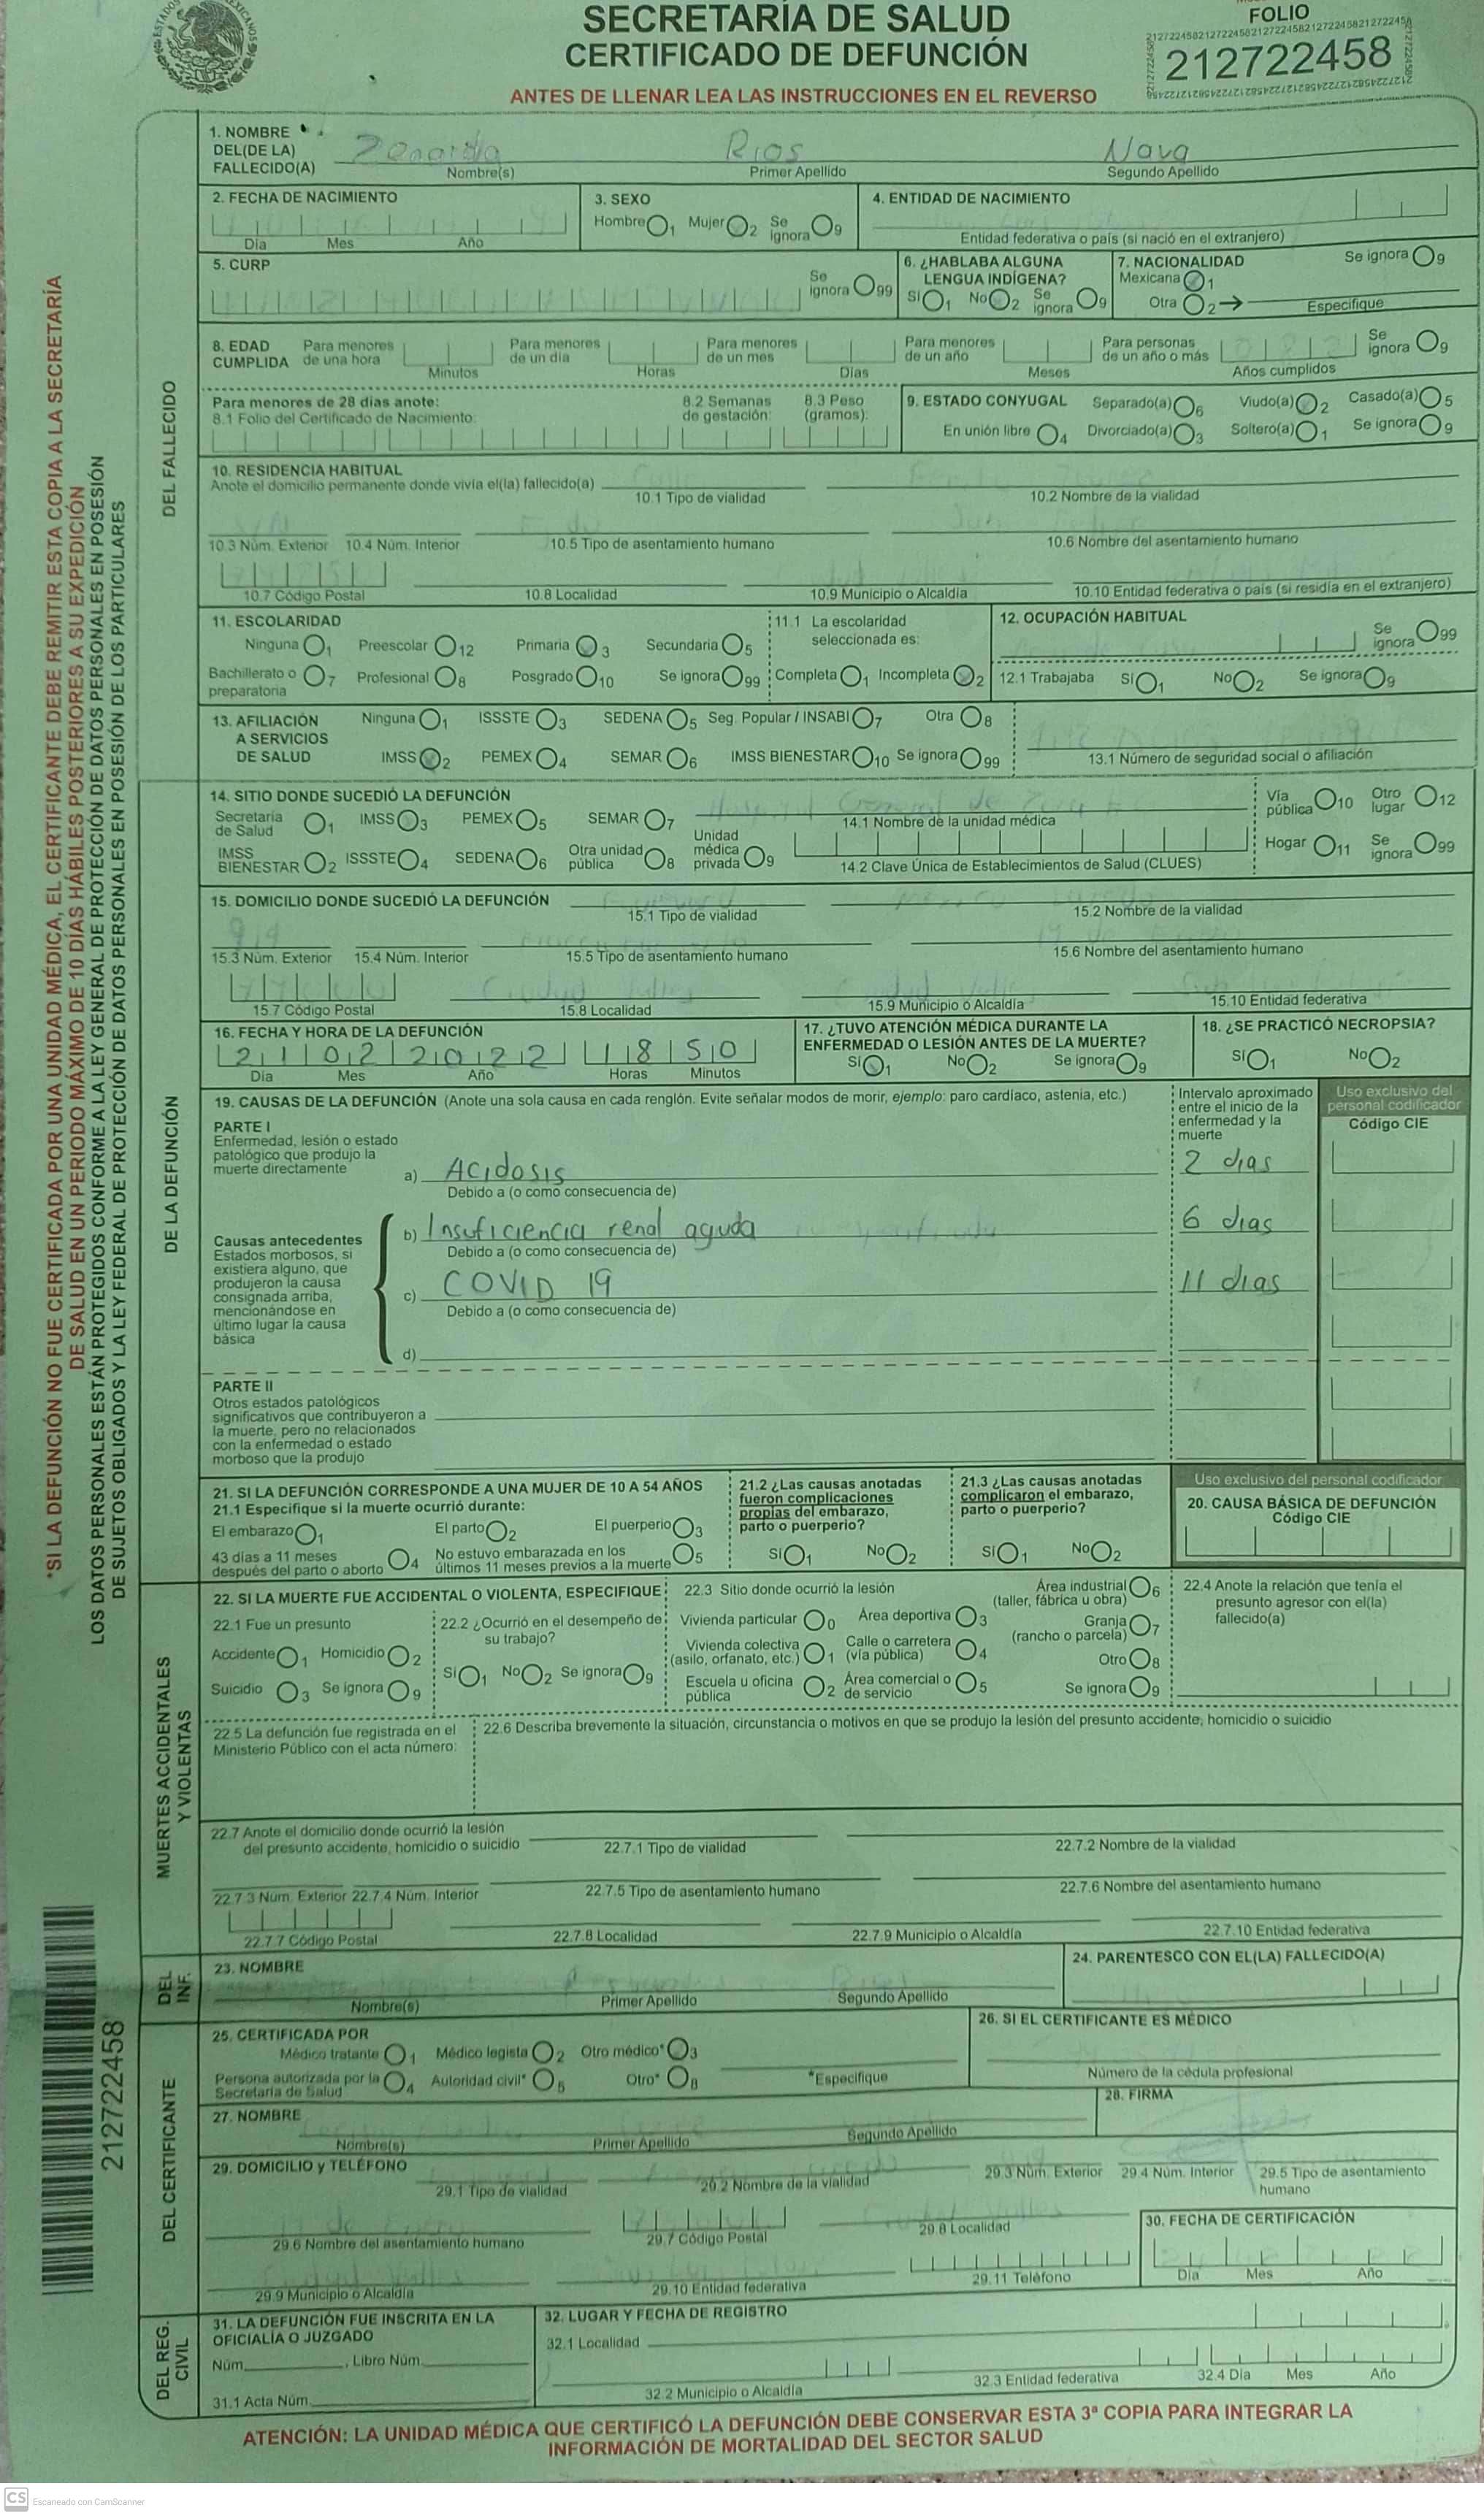 SECRETARÍA DE SALUD
CERTIFICADO DE DEFUNCIÓN
ANTES DE LLENAR LEA LAS INSTRUCCIONES EN EL REVERSO
FOLIO
212722458
1. NOMBRE DEL(DE LA) FALLECIDO(A) Zenaida Rios Nava
Nombre(s) Primer Apellido Segundo Apellido
2. FECHA DE NACIMIENTO
Día Mes Año
3. SEXO
Hombre 1 Mujer 2 Se ignora 9
4. ENTIDAD DE NACIMIENTO
Entidad federativa o país (si nació en el extranjero)
5. CURP
Se ignora 99
6. ¿HABLABA ALGUNA LENGUA INDÍGENA?
Sí 1 No 2 Se ignora 9
7. NACIONALIDAD Se ignora 9
Mexicana 1
Otra 2 Especifique
8. EDAD CUMPLIDA
Para menores de una hora Minutos
Para menores de un día Horas
Para menores de un mes Días
Para menores de un año Meses
Para personas de un año o más Años cumplidos
Se ignora 9
Para menores de 28 días anote:
8.1 Folio del Certificado de Nacimiento:
8.2 Semanas de gestación:
8.3 Peso (gramos):
9. ESTADO CONYUGAL Separado(a) 6 Viudo(a) 2 Casado(a) 5
En unión libre 4 Divorciado(a) 3 Soltero(a) 1 Se ignora 9
10. RESIDENCIA HABITUAL
Anote el domicilio permanente donde vivía el(la) fallecido(a)
10.1 Tipo de vialidad 10.2 Nombre de la vialidad
10.3 Núm. Exterior 10.4 Núm. Interior 10.5 Tipo de asentamiento humano 10.6 Nombre del asentamiento humano
10.7 Código Postal 10.8 Localidad 10.9 Municipio o Alcaldía 10.10 Entidad federativa o país (si residía en el extranjero)
11. ESCOLARIDAD
Ninguna 1 Preescolar 12 Primaria 3 Secundaria 5
Bachillerato o preparatoria 7 Profesional 8 Posgrado 10 Se ignora 99
11.1 La escolaridad seleccionada es:
Completa 1 Incompleta 2
12. OCUPACIÓN HABITUAL
Se ignora 99
12.1 Trabajaba Sí 1 No 2 Se ignora 9
13. AFILIACIÓN A SERVICIOS DE SALUD
Ninguna 1 ISSSTE 3 SEDENA 5 Seg. Popular / INSABI 7 Otra 8
IMSS 2 PEMEX 4 SEMAR 6 IMSS BIENESTAR 10 Se ignora 99
13.1 Número de seguridad social o afiliación
14. SITIO DONDE SUCEDIÓ LA DEFUNCIÓN
Secretaría de Salud 1 IMSS 3 PEMEX 5 SEMAR 7
IMSS BIENESTAR 2 ISSSTE 4 SEDENA 6 Otra unidad pública 8 Unidad médica privada 9
14.1 Nombre de la unidad médica
14.2 Clave Única de Establecimientos de Salud (CLUES)
Vía pública 10 Otro lugar 12
Hogar 11 Se ignora 99
15. DOMICILIO DONDE SUCEDIÓ LA DEFUNCIÓN
15.1 Tipo de vialidad 15.2 Nombre de la vialidad
15.3 Núm. Exterior 15.4 Núm. Interior 15.5 Tipo de asentamiento humano 15.6 Nombre del asentamiento humano
15.7 Código Postal 15.8 Localidad 15.9 Municipio o Alcaldía 15.10 Entidad federativa
16. FECHA Y HORA DE LA DEFUNCIÓN
21 02 2022 18 50
Día Mes Año Horas Minutos
17. ¿TUVO ATENCIÓN MÉDICA DURANTE LA ENFERMEDAD O LESIÓN ANTES DE LA MUERTE?
Sí 1 No 2 Se ignora 9
18. ¿SE PRACTICÓ NECROPSIA?
Sí 1 No 2
19. CAUSAS DE LA DEFUNCIÓN (Anote una sola causa en cada renglón. Evite señalar modos de morir, ejemplo: paro cardíaco, astenia, etc.)
Intervalo aproximado entre el inicio de la enfermedad y la muerte
Uso exclusivo del personal codificador
Código CIE
PARTE I
Enfermedad, lesión o estado patológico que produjo la muerte directamente
a) Acidosis 2 dias
Debido a (o como consecuencia de)
Causas antecedentes
Estados morbosos, si existiera alguno, que produjeron la causa consignada arriba, mencionándose en último lugar la causa básica
b) Insuficiencia renal aguda 6 dias
Debido a (o como consecuencia de)
c) COVID 19 11 dias
Debido a (o como consecuencia de)
d)
PARTE II
Otros estados patológicos significativos que contribuyeron a la muerte, pero no relacionados con la enfermedad o estado morboso que la produjo
21. SI LA DEFUNCIÓN CORRESPONDE A UNA MUJER DE 10 A 54 AÑOS
21.1 Especifique si la muerte ocurrió durante:
El embarazo 1 El parto 2 El puerperio 3
43 días a 11 meses después del parto o aborto 4 No estuvo embarazada en los últimos 11 meses previos a la muerte 5
21.2 ¿Las causas anotadas fueron complicaciones propias del embarazo, parto o puerperio?
Sí 1 No 2
21.3 ¿Las causas anotadas complicaron el embarazo, parto o puerperio?
Sí 1 No 2
Uso exclusivo del personal codificador
20. CAUSA BÁSICA DE DEFUNCIÓN
Código CIE
22. SI LA MUERTE FUE ACCIDENTAL O VIOLENTA, ESPECIFIQUE
22.1 Fue un presunto
Accidente 1 Homicidio 2
Suicidio 3 Se ignora 9
22.2 ¿Ocurrió en el desempeño de su trabajo?
Sí 1 No 2 Se ignora 9
22.3 Sitio donde ocurrió la lesión
Vivienda particular 0 Área deportiva 3 Área industrial (taller, fábrica u obra) 6
Vivienda colectiva (asilo, orfanato, etc.) 1 Calle o carretera (vía pública) 4 Granja (rancho o parcela) 7
Otro 8
Escuela u oficina pública 2 Área comercial o de servicio 5 Se ignora 9
22.4 Anote la relación que tenía el presunto agresor con el(la) fallecido(a)
22.5 La defunción fue registrada en el Ministerio Público con el acta número:
22.6 Describa brevemente la situación, circunstancia o motivos en que se produjo la lesión del presunto accidente, homicidio o suicidio
22.7 Anote el domicilio donde ocurrió la lesión del presunto accidente, homicidio o suicidio
22.7.1 Tipo de vialidad 22.7.2 Nombre de la vialidad
22.7.3 Núm. Exterior 22.7.4 Núm. Interior 22.7.5 Tipo de asentamiento humano 22.7.6 Nombre del asentamiento humano
22.7.7 Código Postal 22.7.8 Localidad 22.7.9 Municipio o Alcaldía 22.7.10 Entidad federativa
23. NOMBRE
Nombre(s) Primer Apellido Segundo Apellido
24. PARENTESCO CON EL(LA) FALLECIDO(A)
25. CERTIFICADA POR
Médico tratante 1 Médico legista 2 Otro médico* 3
Persona autorizada por la Secretaría de Salud 4 Autoridad civil* 5 Otro* 8
*Especifique
26. SI EL CERTIFICANTE ES MÉDICO
Número de la cédula profesional
27. NOMBRE
Nombre(s) Primer Apellido Segundo Apellido
28. FIRMA
29. DOMICILIO y TELÉFONO
29.1 Tipo de vialidad 29.2 Nombre de la vialidad 29.3 Núm. Exterior 29.4 Núm. Interior 29.5 Tipo de asentamiento humano
29.6 Nombre del asentamiento humano 29.7 Código Postal 29.8 Localidad
29.9 Municipio o Alcaldía 29.10 Entidad federativa 29.11 Teléfono
30. FECHA DE CERTIFICACIÓN
Día Mes Año
31. LA DEFUNCIÓN FUE INSCRITA EN LA OFICIALÍA O JUZGADO
Núm. , Libro Núm.
31.1 Acta Núm.
32. LUGAR Y FECHA DE REGISTRO
32.1 Localidad
32.2 Municipio o Alcaldía 32.3 Entidad federativa 32.4 Día Mes Año
ATENCIÓN: LA UNIDAD MÉDICA QUE CERTIFICÓ LA DEFUNCIÓN DEBE CONSERVAR ESTA 3ª COPIA PARA INTEGRAR LA
INFORMACIÓN DE MORTALIDAD DEL SECTOR SALUD
DEL FALLECIDO
DE LA DEFUNCIÓN
MUERTES ACCIDENTALES Y VIOLENTAS
DEL INF.
DEL CERTIFICANTE
DEL REG. CIVIL
*SI LA DEFUNCIÓN NO FUE CERTIFICADA POR UNA UNIDAD MÉDICA, EL CERTIFICANTE DEBE REMITIR ESTA COPIA A LA SECRETARÍA
DE SALUD EN UN PERIODO MÁXIMO DE 10 DÍAS HÁBILES POSTERIORES A SU EXPEDICIÓN
LOS DATOS PERSONALES ESTÁN PROTEGIDOS CONFORME A LA LEY GENERAL DE PROTECCIÓN DE DATOS PERSONALES EN POSESIÓN
DE SUJETOS OBLIGADOS Y LA LEY FEDERAL DE PROTECCIÓN DE DATOS PERSONALES EN POSESIÓN DE LOS PARTICULARES
212722458
CS Escaneado con CamScanner